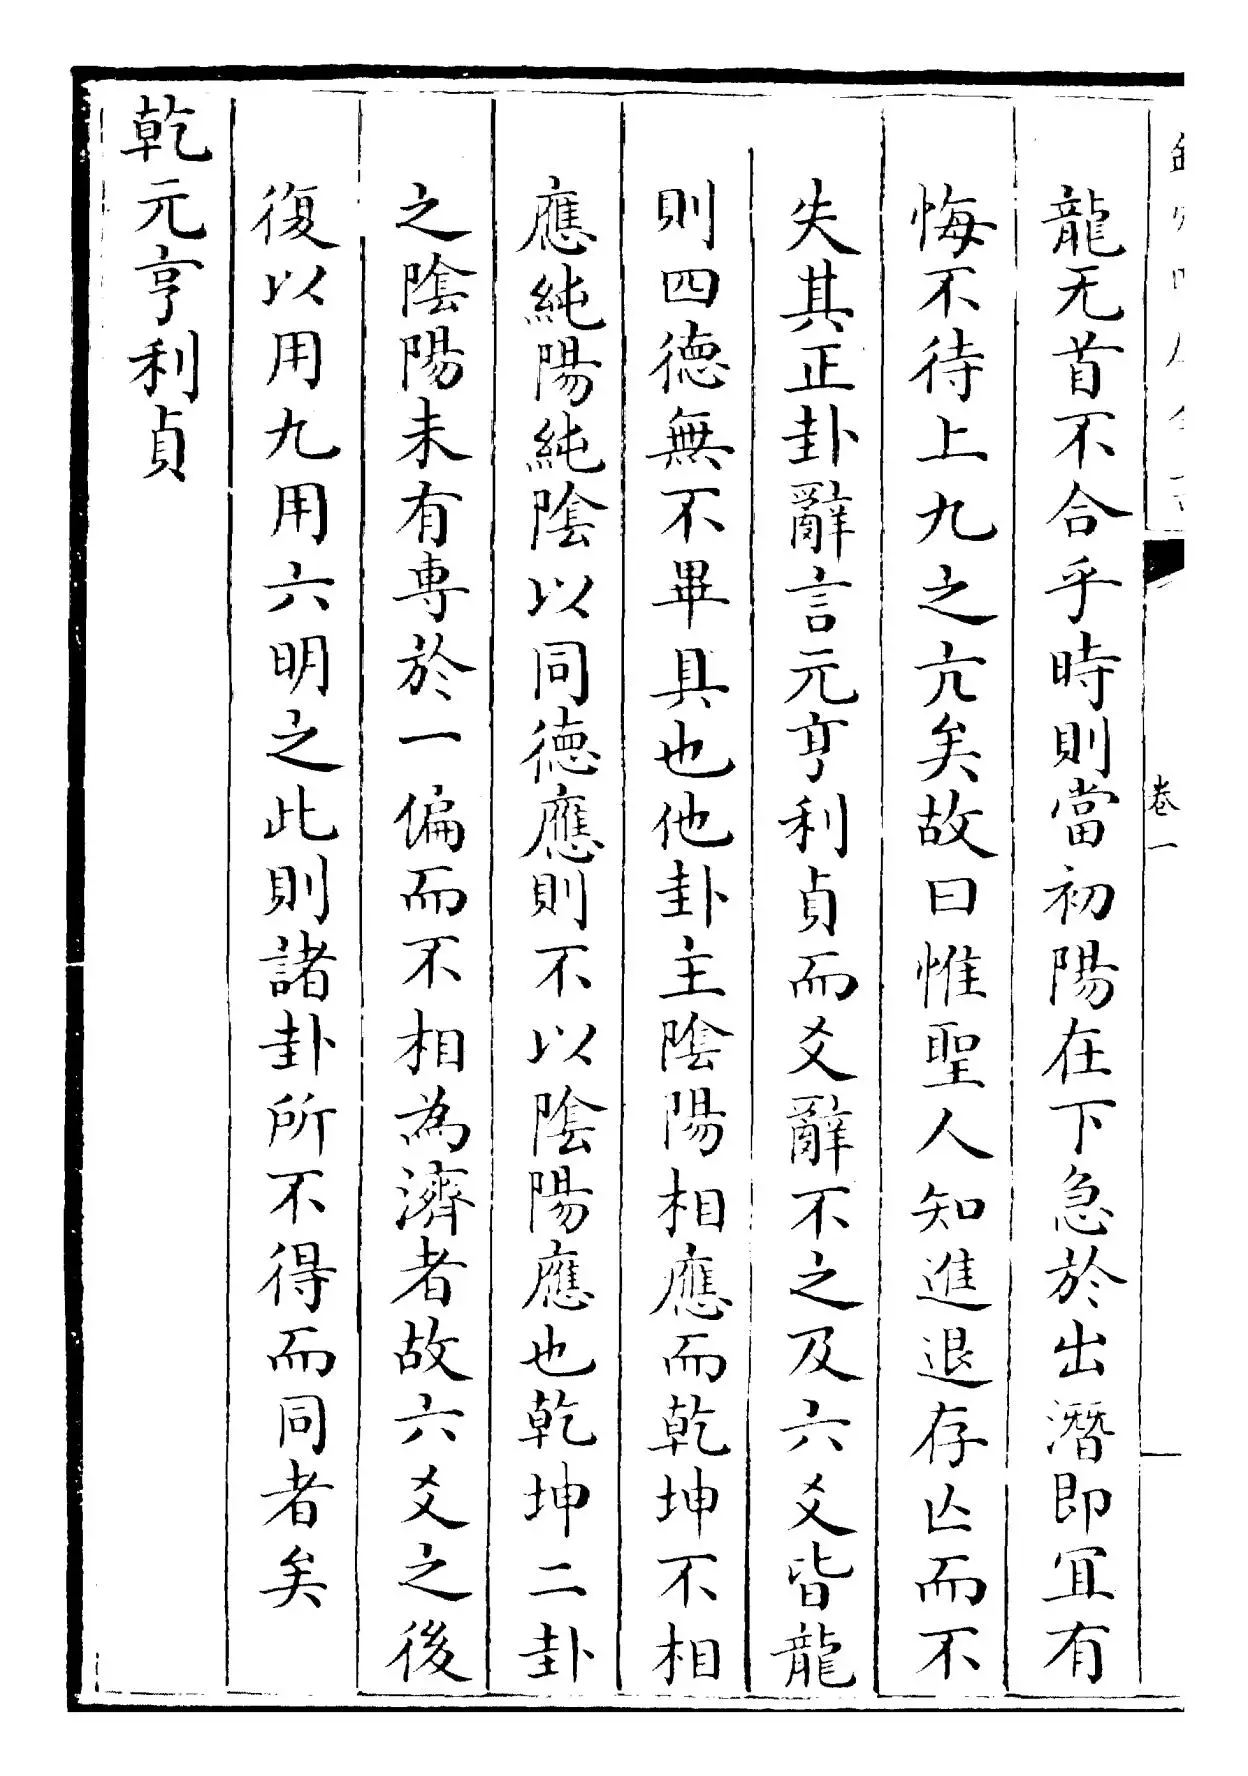 卷一
龍无首不合乎時則當初陽在下急於出潛即冝有
悔不待上九之亢矣故曰惟聖人知進退存亾而不
失其正卦辭言元亨利貞而爻辭不之及六爻皆龍
則四德無不畢具也他卦主陰陽相應而乾坤不相
應純陽純陰以同德應則不以陰陽應也乾坤二卦
之陰陽未有專於一偏而不相為濟者故六爻之後
復以用九用六明之此則諸卦所不得而同者矣
乾元亨利貞